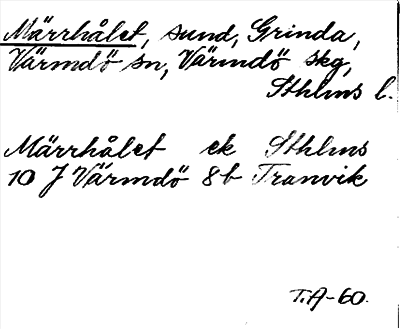 Märrhålet, sund, Grinda,
Värmdö sn, Värmdö skg,
Sthlms l.
Märrhålet ek Sthlms
10 J Värmdö 8b Tranvik
T.A-60.